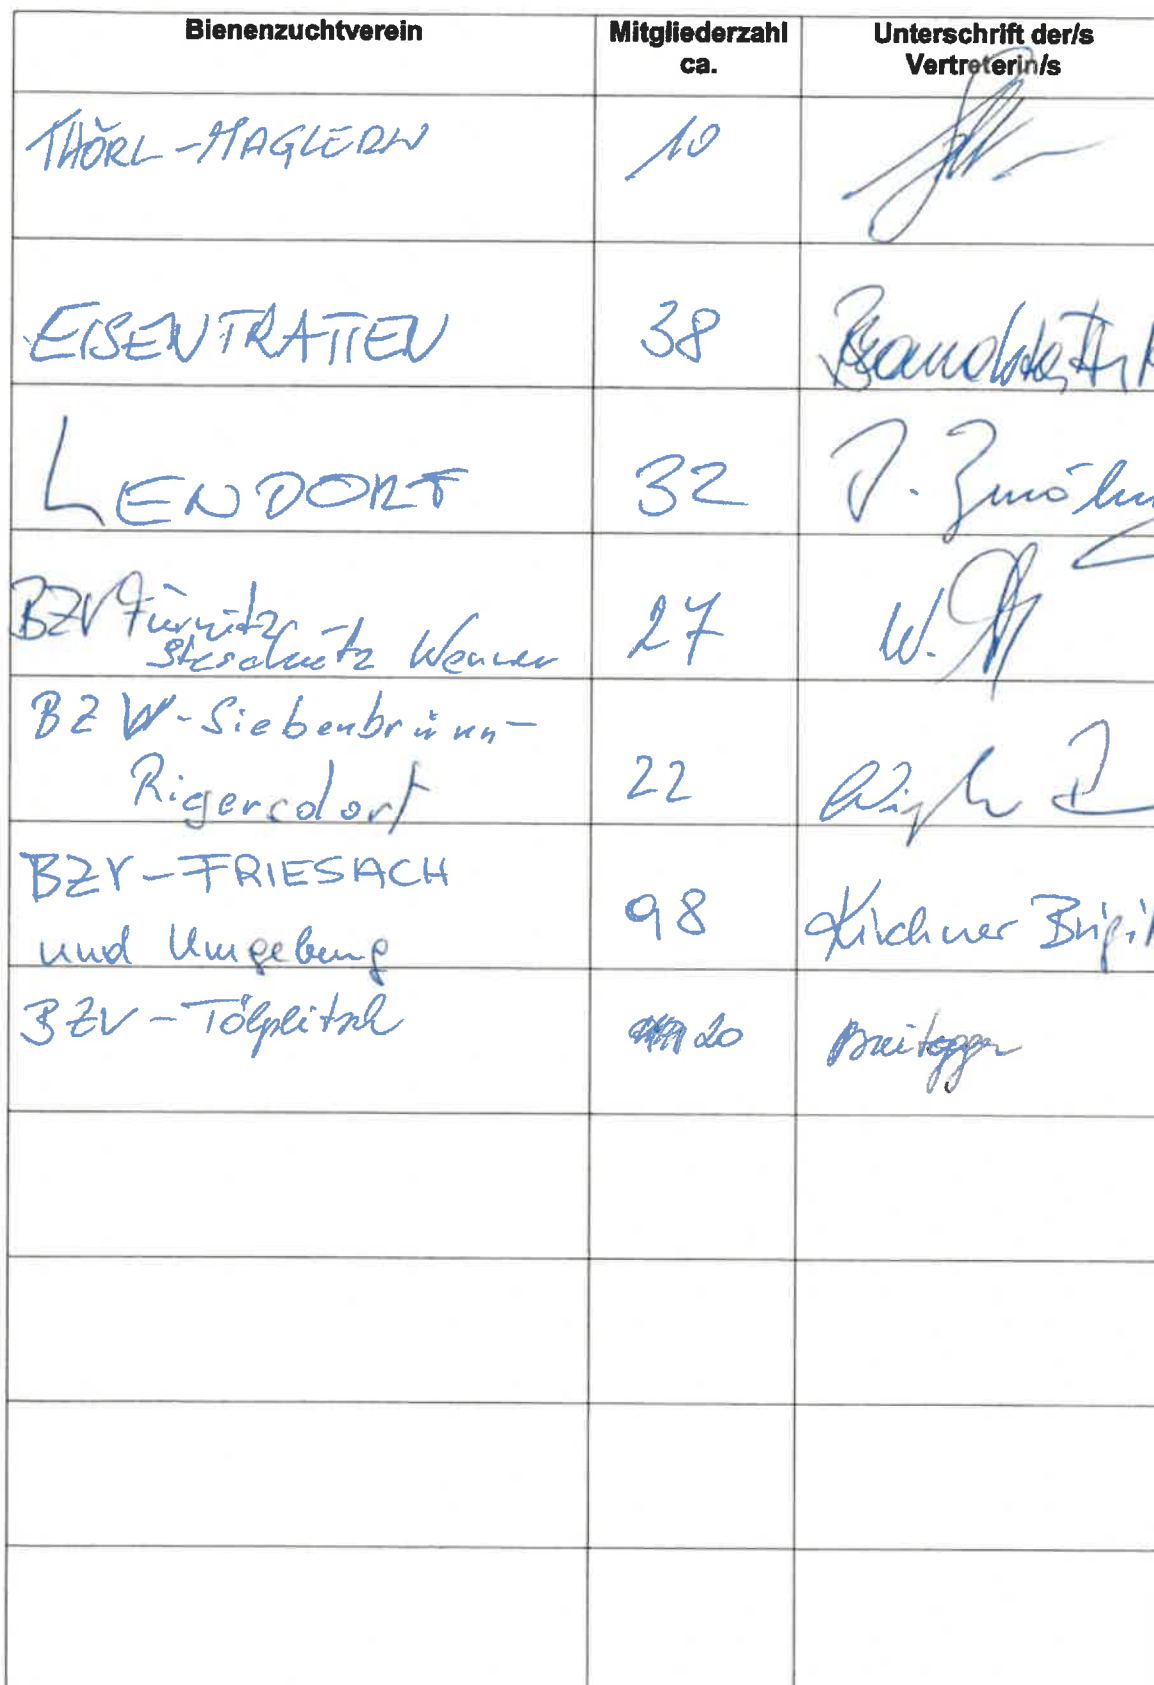 Bienenzuchtverein Mitgliederzahl ca. Unterschrift der/s Vertreterin/s
THÖRL-MAGLERN 10
EISENTRATTEN 38
LENDORF 32 J.
BZV Fürnitz 27 W.
Werner
BZV-Siebenbrünn-
Rigersdorf 22
BZV-FRIESACH 98 Kirchner Brigit
und Umgebung
BZV-Töplitsch 20 Breitegger